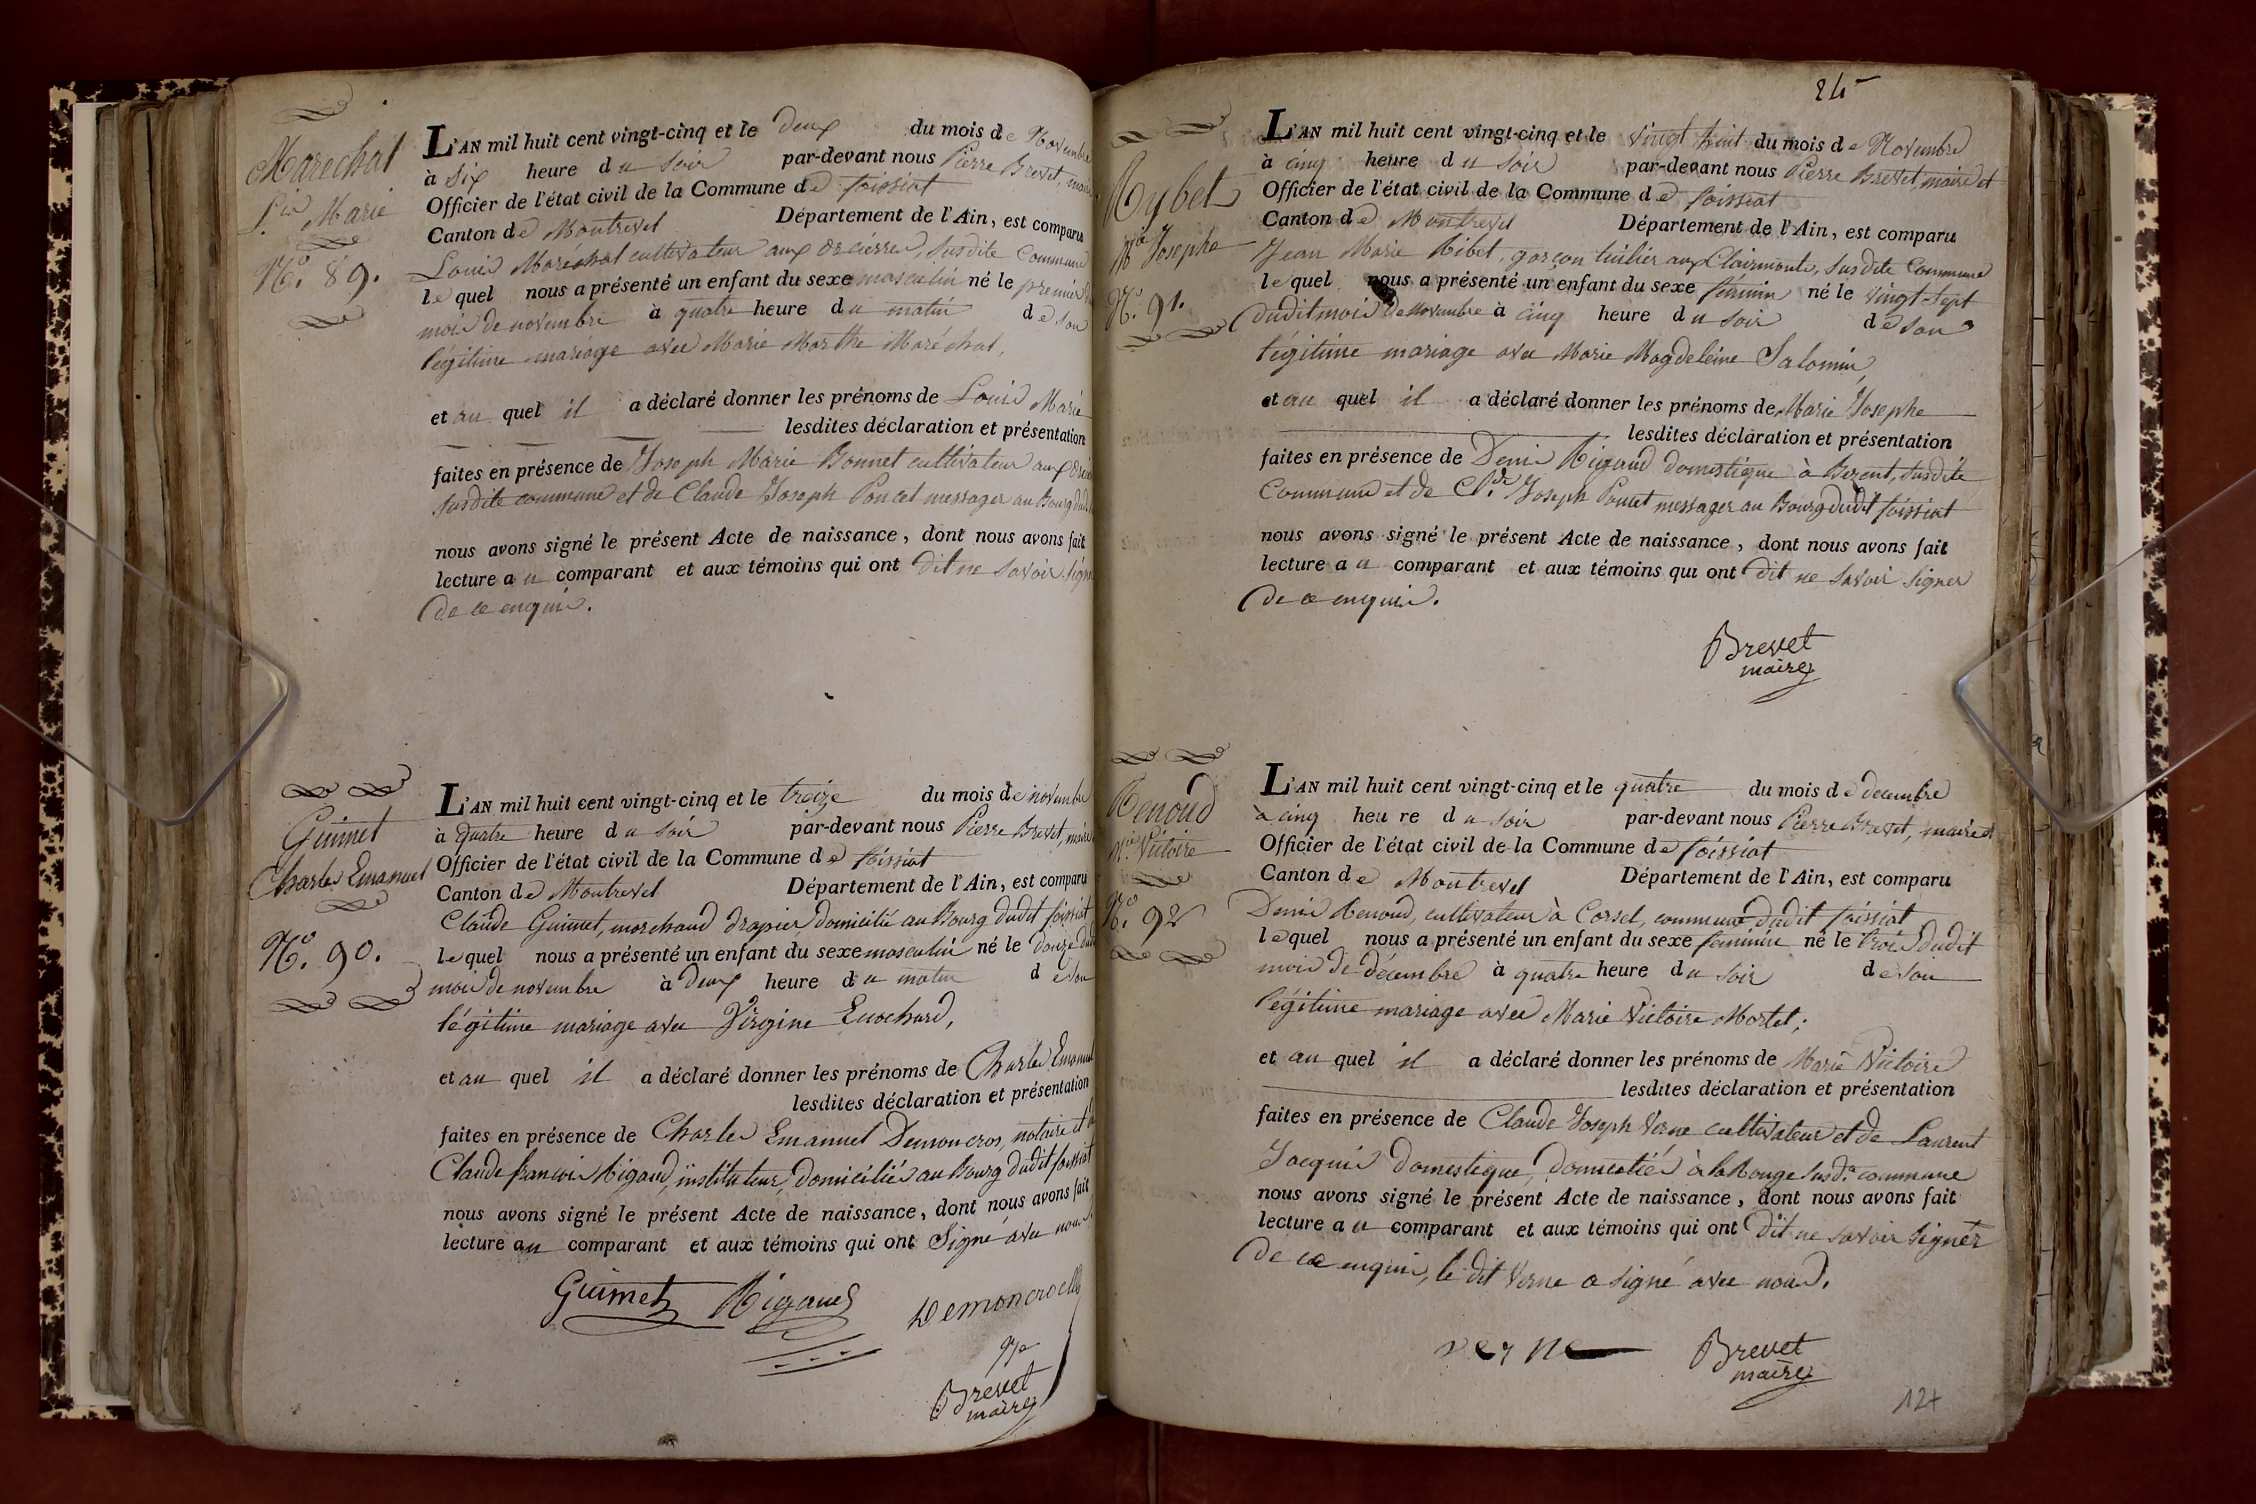 Maréchal
L.is Marie
N.o 89.
L'AN mil huit cent vingt-cinq et le deux du mois de Novembre
à Six heure du soir par-devant nous Pierre Brevet, maire
Officier de l'état civil de la Commune de foissiat
Canton de Montrevel Département de l'Ain, est comparu
Louis Maréchal cultivateur aux susdite Commune
lequel nous a présenté un enfant du sexe masculin né le premier du
mois de novembre à quatre heure du matin de son
légitime mariage avec Marie Marthe Maréchal,
et au quel il a déclaré donner les prénoms de Louis Marie
lesdites déclaration et présentation
faites en présence de Joseph Marie Bonnet cultivateur aux
susdite commune et de Claude Joseph Poncet messager au Bourg dudit
nous avons signé le présent Acte de naissance, dont nous avons fait
lecture au comparant et aux témoins qui ont dit ne savoir signer
de ce enquis.
Guimet
Charles Emanuel
N.o 90.
L'AN mil huit cent vingt-cinq et le treize du mois de novembre
à quatre heure du soir par-devant nous Pierre Brevet, maire
Officier de l'état civil de la Commune de foissiat
Canton de Montrevel Département de l'Ain, est comparu
Claude Guimet, marchand drapier domicilié au Bourg dudit foissiat
lequel nous a présenté un enfant du sexe masculin né le douze dudit
mois de novembre à deux heure du matin de son
légitime mariage avec Virgine Enochard,
et au quel il a déclaré donner les prénoms de Charles Emanuel
lesdites déclaration et présentation
faites en présence de Charles Emanuel Demoncros, notaire et de
Claude françois Rigaud, instituteur, domiciliés au Bourg dudit foissiat
nous avons signé le présent Acte de naissance, dont nous avons fait
lecture au comparant et aux témoins qui ont Signé avec nous
Guimet Rigaud Demoncros
Brevet
maire
24
Rybet
M.ie Josephe
N.o 91.
L'AN mil huit cent vingt-cinq et le vingt huit du mois de Novembre
à cinq heure du soir par-devant nous Pierre Brevet, maire et
Officier de l'état civil de la Commune de foissiat
Canton de Montrevel Département de l'Ain, est comparu
Jean Marie Ribet, garçon tuilier aux Clairmonts, susdite Commune
lequel nous a présenté un enfant du sexe féminin né le vingt-sept
dudit mois de novembre à cinq heure du soir de son
légitime mariage avec Marie Magdeleine Salomin,
et au quel il a déclaré donner les prénoms de Marie Josephe
lesdites déclaration et présentation
faites en présence de Denis Rigaud domestique à Berent, susdite
Commune et de Cl.de Joseph Poncet messager au Bourg dudit foissiat
nous avons signé le présent Acte de naissance, dont nous avons fait
lecture au comparant et aux témoins qui ont dit ne savoir signer
de ce enquis.
Brevet
maire
Renoud
M.ie Victoire
N.o 92
L'AN mil huit cent vingt-cinq et le quatre du mois de decembre
à cinq heure du soir par-devant nous Pierre Brevet, maire et
Officier de l'état civil de la Commune de foissiat
Canton de Montrevel Département de l'Ain, est comparu
Denis Renoud, cultivateur à Corsel, commune dudit foissiat
lequel nous a présenté un enfant du sexe féminin né le trois dudit
mois de décembre à quatre heure du soir de son
légitime mariage avec Marie Victoire Mortel;
et au quel il a déclaré donner les prénoms de Marie Victoire
lesdites déclaration et présentation
faites en présence de Claude Joseph Verne cultivateur et de Laurent
Jacquis domestique, domiciliés à la Rouge susd.e commune
nous avons signé le présent Acte de naissance, dont nous avons fait
lecture au comparant et aux témoins qui ont dit ne savoir signer
de ce enquis, le dit Verne a signé avec nous.
verne Brevet
maire
124